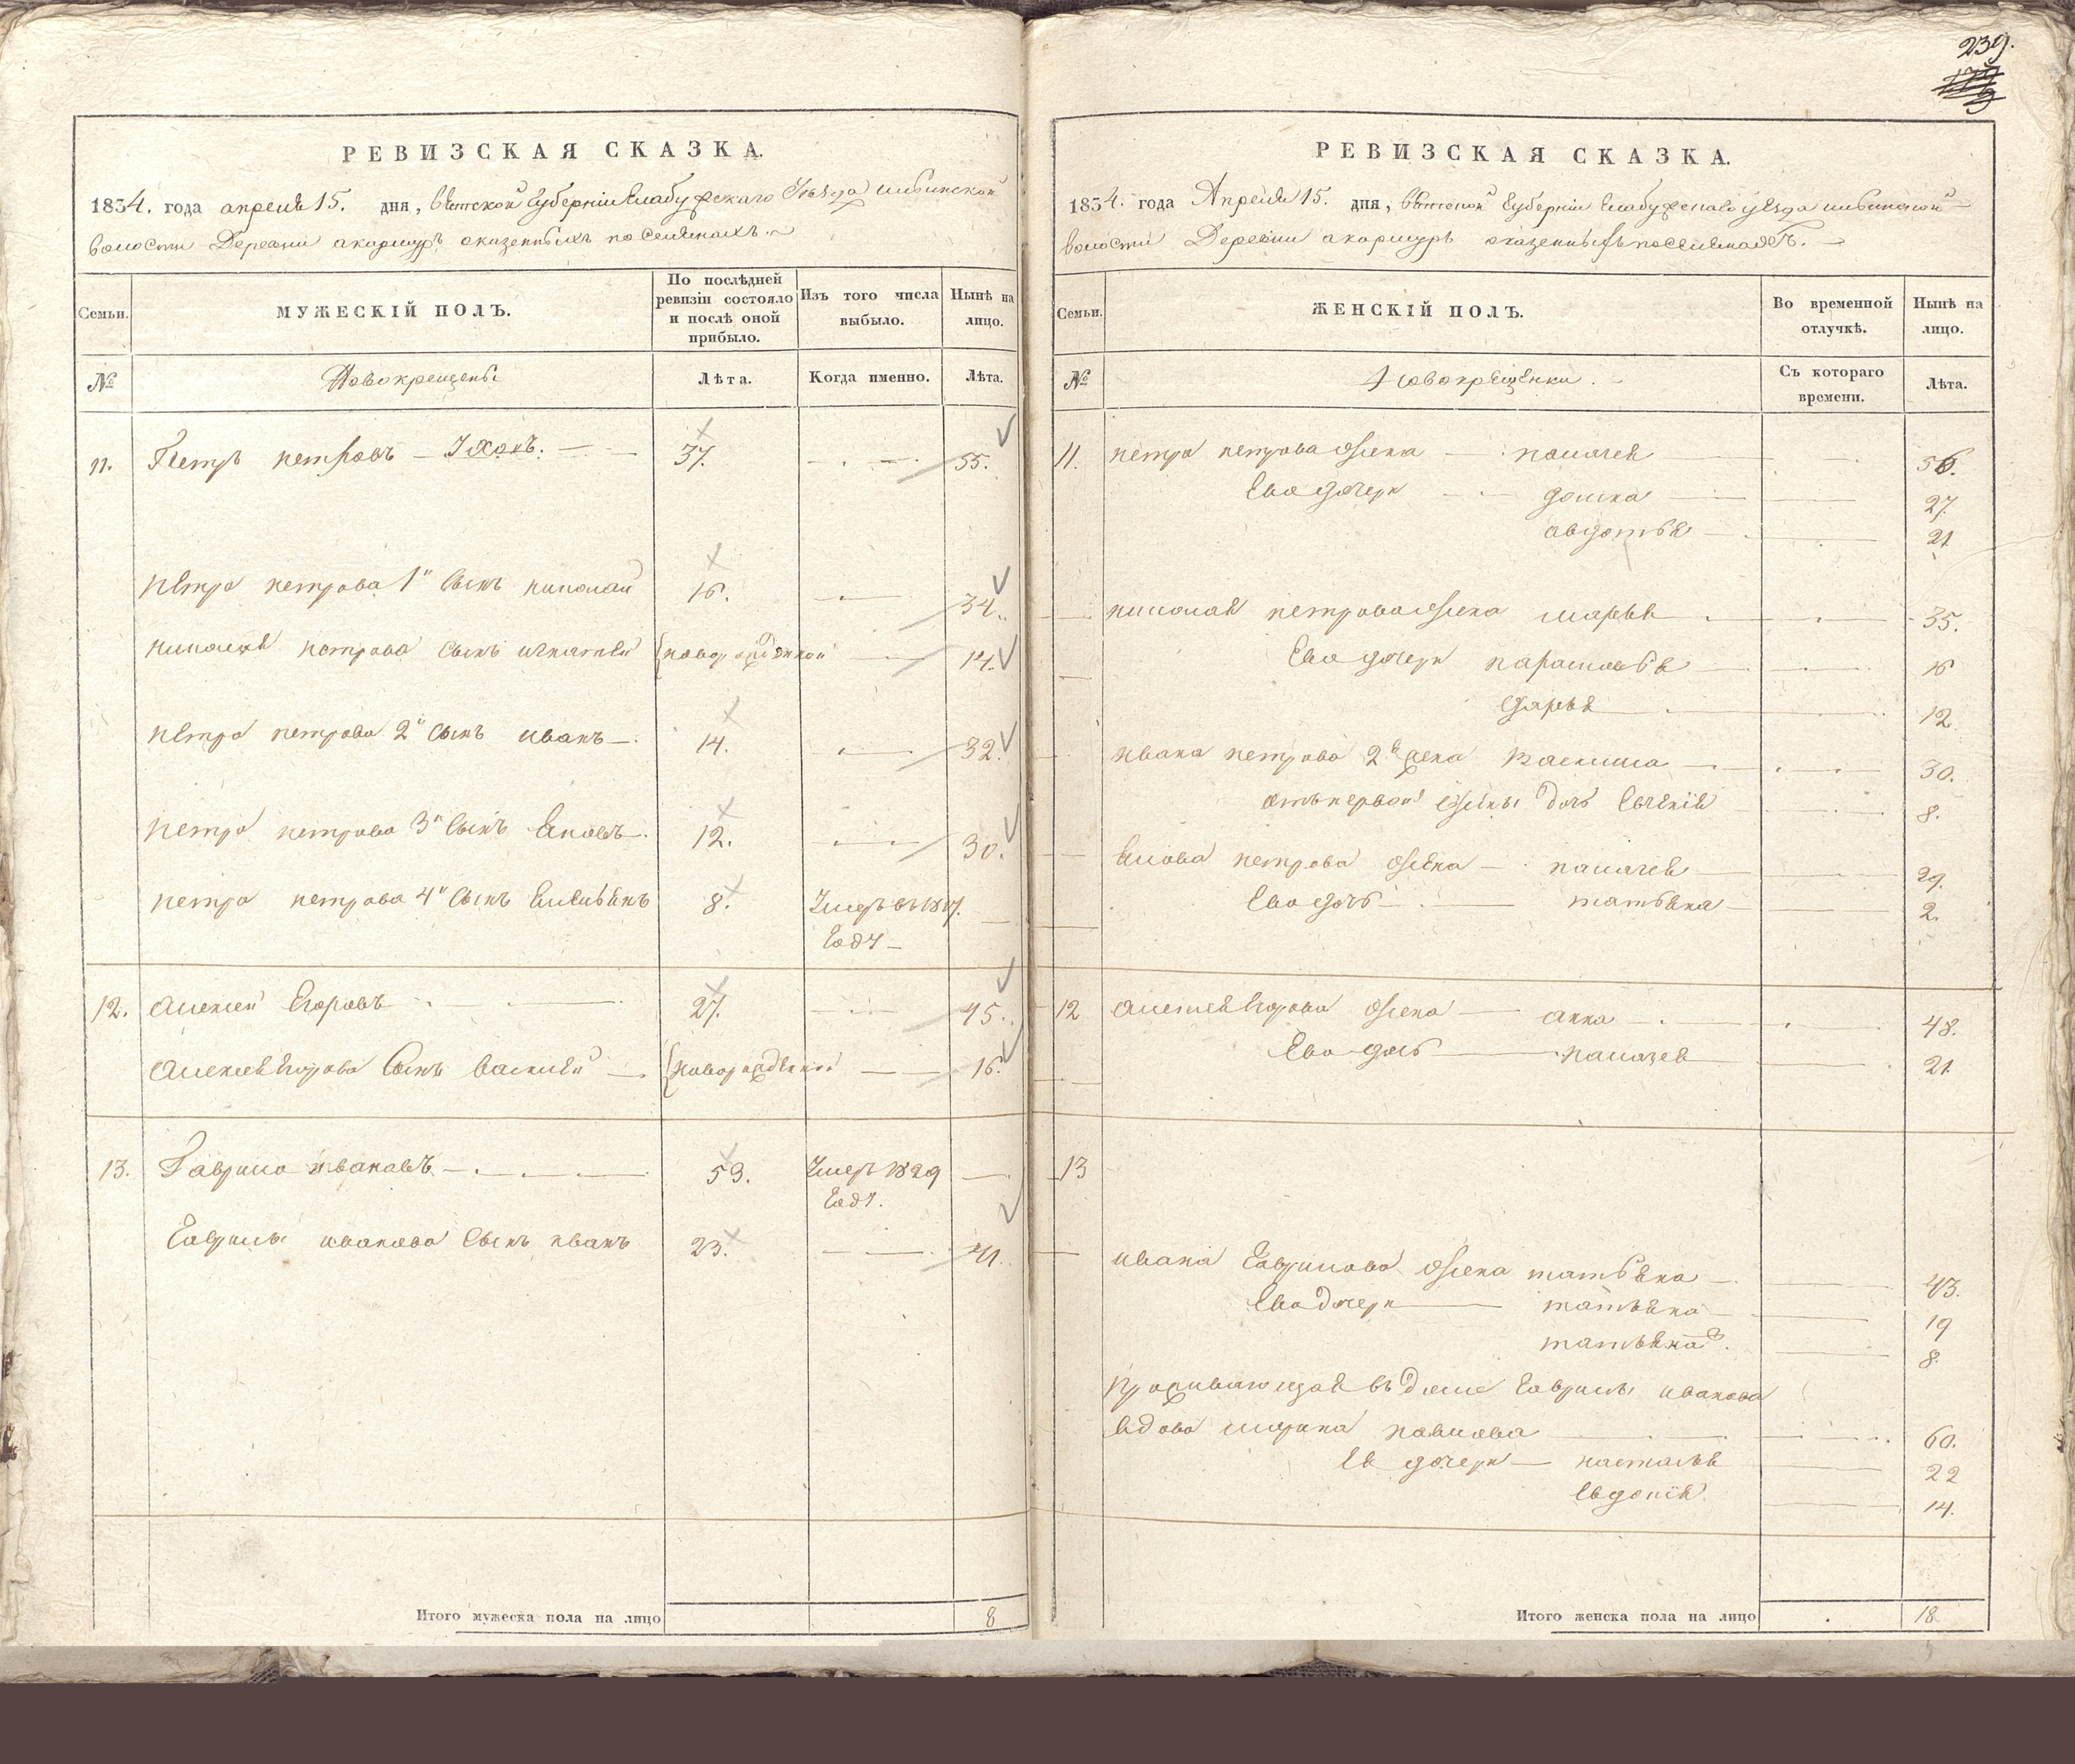 239.
РЕВИЗСКАЯ СКАЗКА.
1834. года апреля 15. дня, Вятской Губернии Елабужскаго Уезда
волости Деревни акаршуръ оказенныхъ поселянахъ.
Семьи. МУЖЕСКІЙ ПОЛЪ. По послѣдней ревизіи состояло и послѣ оной прибыло. Изъ того числа выбыло. Нынѣ на лицо.
№ Новокрещены Лѣта. Когда именно. Лѣта.
11. Петръ петровъ 37. 55.
петра петрова 1й сынъ николай 16. 34.
николая петрова сынъ игнатей новорожденной 14.
петра петрова 2й сынъ иванъ 14. 32.
петра петрова 3й сынъ Яковъ 12. 30.
петра петрова 4й сынъ 8. Умеръ въ 1817.
году
12. алексей Егоровъ 27. 45.
алексея Егорова сынъ василей новорожденной 16.
13. Гаврило ивановъ 53. Умеръ 1829
году.
Гаврилы иванова сынъ иванъ 23. 41.
Итого мужеска пола на лицо 8
РЕВИЗСКАЯ СКАЗКА.
1834. года Апреля 15. дня, Вятской Губернии Елабужскаго уезда
волости Деревни акаршуръ оказенныхъ поселянахъ.
Семьи. ЖЕНСКІЙ ПОЛЪ. Во временной отлучкѣ. Нынѣ на лицо.
№ Новокрещенки. Съ котораго времени. Лѣта.
11. петра петрова жена палагея 56.
Ево дочери домна 27.
авдотья 21.
николая петрова жена марья 35.
Ево дочери парасковья 16
дарья 12.
ивана петрова 2я жена василиса 30.
отъ первой жены дочь 8.
Якова петрова жена палагея 29.
Ево дочь татьяна 2.
12 алексея Егорова жена анна 48.
Ево дочь палагея 21.
13
ивана Гаврилова жена татьяна 43.
Ево дочери татьяна 19
татьяна 8.
проживающая въ доме Гаврилы иванова
вдова марина павлова 60.
Ея дочери настасья 22
Евдокия 14.
Итого женска пола на лицо 18